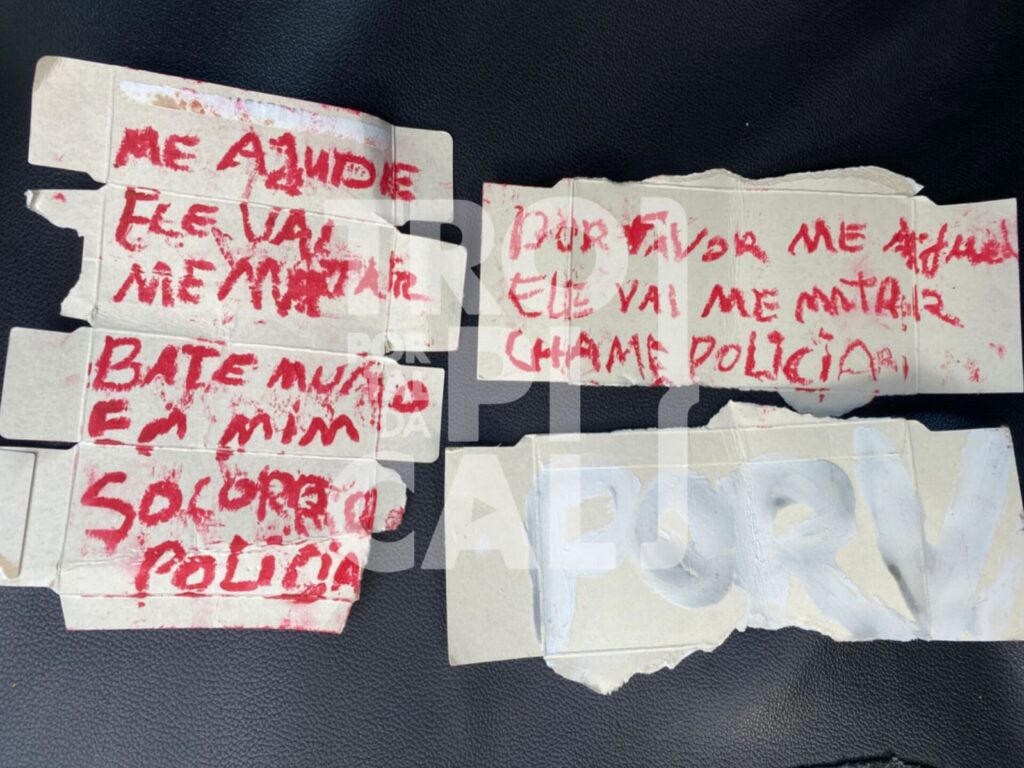 ME AJUDE
ELE VAI
ME MATAR
BATE MUITO
EM MIM
SOCORRO
POLICIA
POR FAVOR ME AJUDE
ELE VAI ME MATAR
CHAME POLICIA
PORV
PORTAL DA TROPICAL